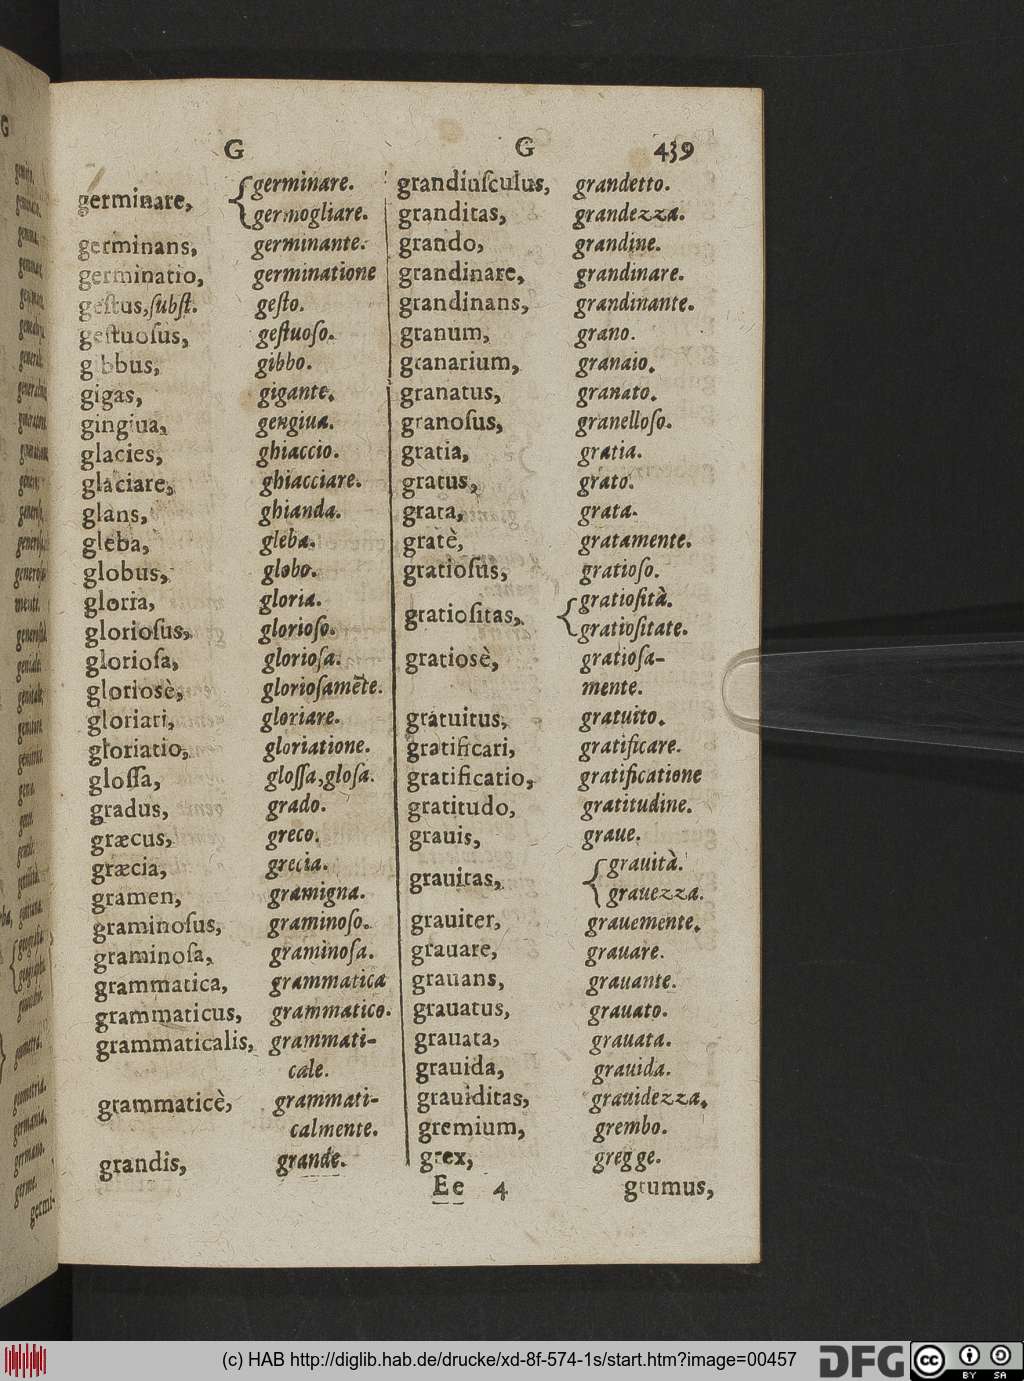 G G 439
germinare, germinare.
germogliare.
germinans, germinante.
germinatio, germinatione
gestus, ſubſt. geſto.
geſtuoſus, geſtuoſo.
gibbus, gibbo.
gigas, gigante.
gingiua, gengiua.
glacies, ghiaccio.
glaciare, ghiacciare.
glans, ghianda.
gleba, gleba.
globus, globo.
gloria, gloria.
glorioſus, glorioſo.
glorioſa, glorioſa.
gloriosè, glorioſamēte.
gloriari, gloriare.
gloriatio, gloriatione.
gloſſa, gloſſa, gloſa.
gradus, grado.
græcus, greco.
græcia, grecia.
gramen, gramigna.
graminoſus, graminoſo.
graminoſa, graminoſa.
grammatica, grammatica
grammaticus, grammatico.
grammaticalis, grammati-
cale.
grammaticè, grammati-
calmente.
grandis, grande.
grandiuſculus, grandetto.
granditas, grandezza.
grando, grandine.
grandinare, grandinare.
grandinans, grandinante.
granum, grano.
granarium, granaio.
granatus, granato.
granoſus, granelloſo.
gratia, gratia.
gratus, grato.
grata, grata.
gratè, gratamente.
gratioſus, gratioſo.
gratioſitas, gratioſità.
gratioſitate.
gratiosè, gratioſa-
mente.
gratuitus, gratuito.
gratificari, gratificare.
gratificatio, gratificatione
gratitudo, gratitudine.
grauis, graue.
grauitas, grauità.
grauezza.
grauiter, grauemente.
grauare, grauare.
grauans, grauante.
grauatus, grauato.
grauata, grauata.
grauida, grauida.
grauiditas, grauidezza.
gremium, grembo.
grex, gregge.
Ee 4 grumus,
(c) HAB http://diglib.hab.de/drucke/xd-8f-574-1s/start.htm?image=00457
DFG
cc BY SA